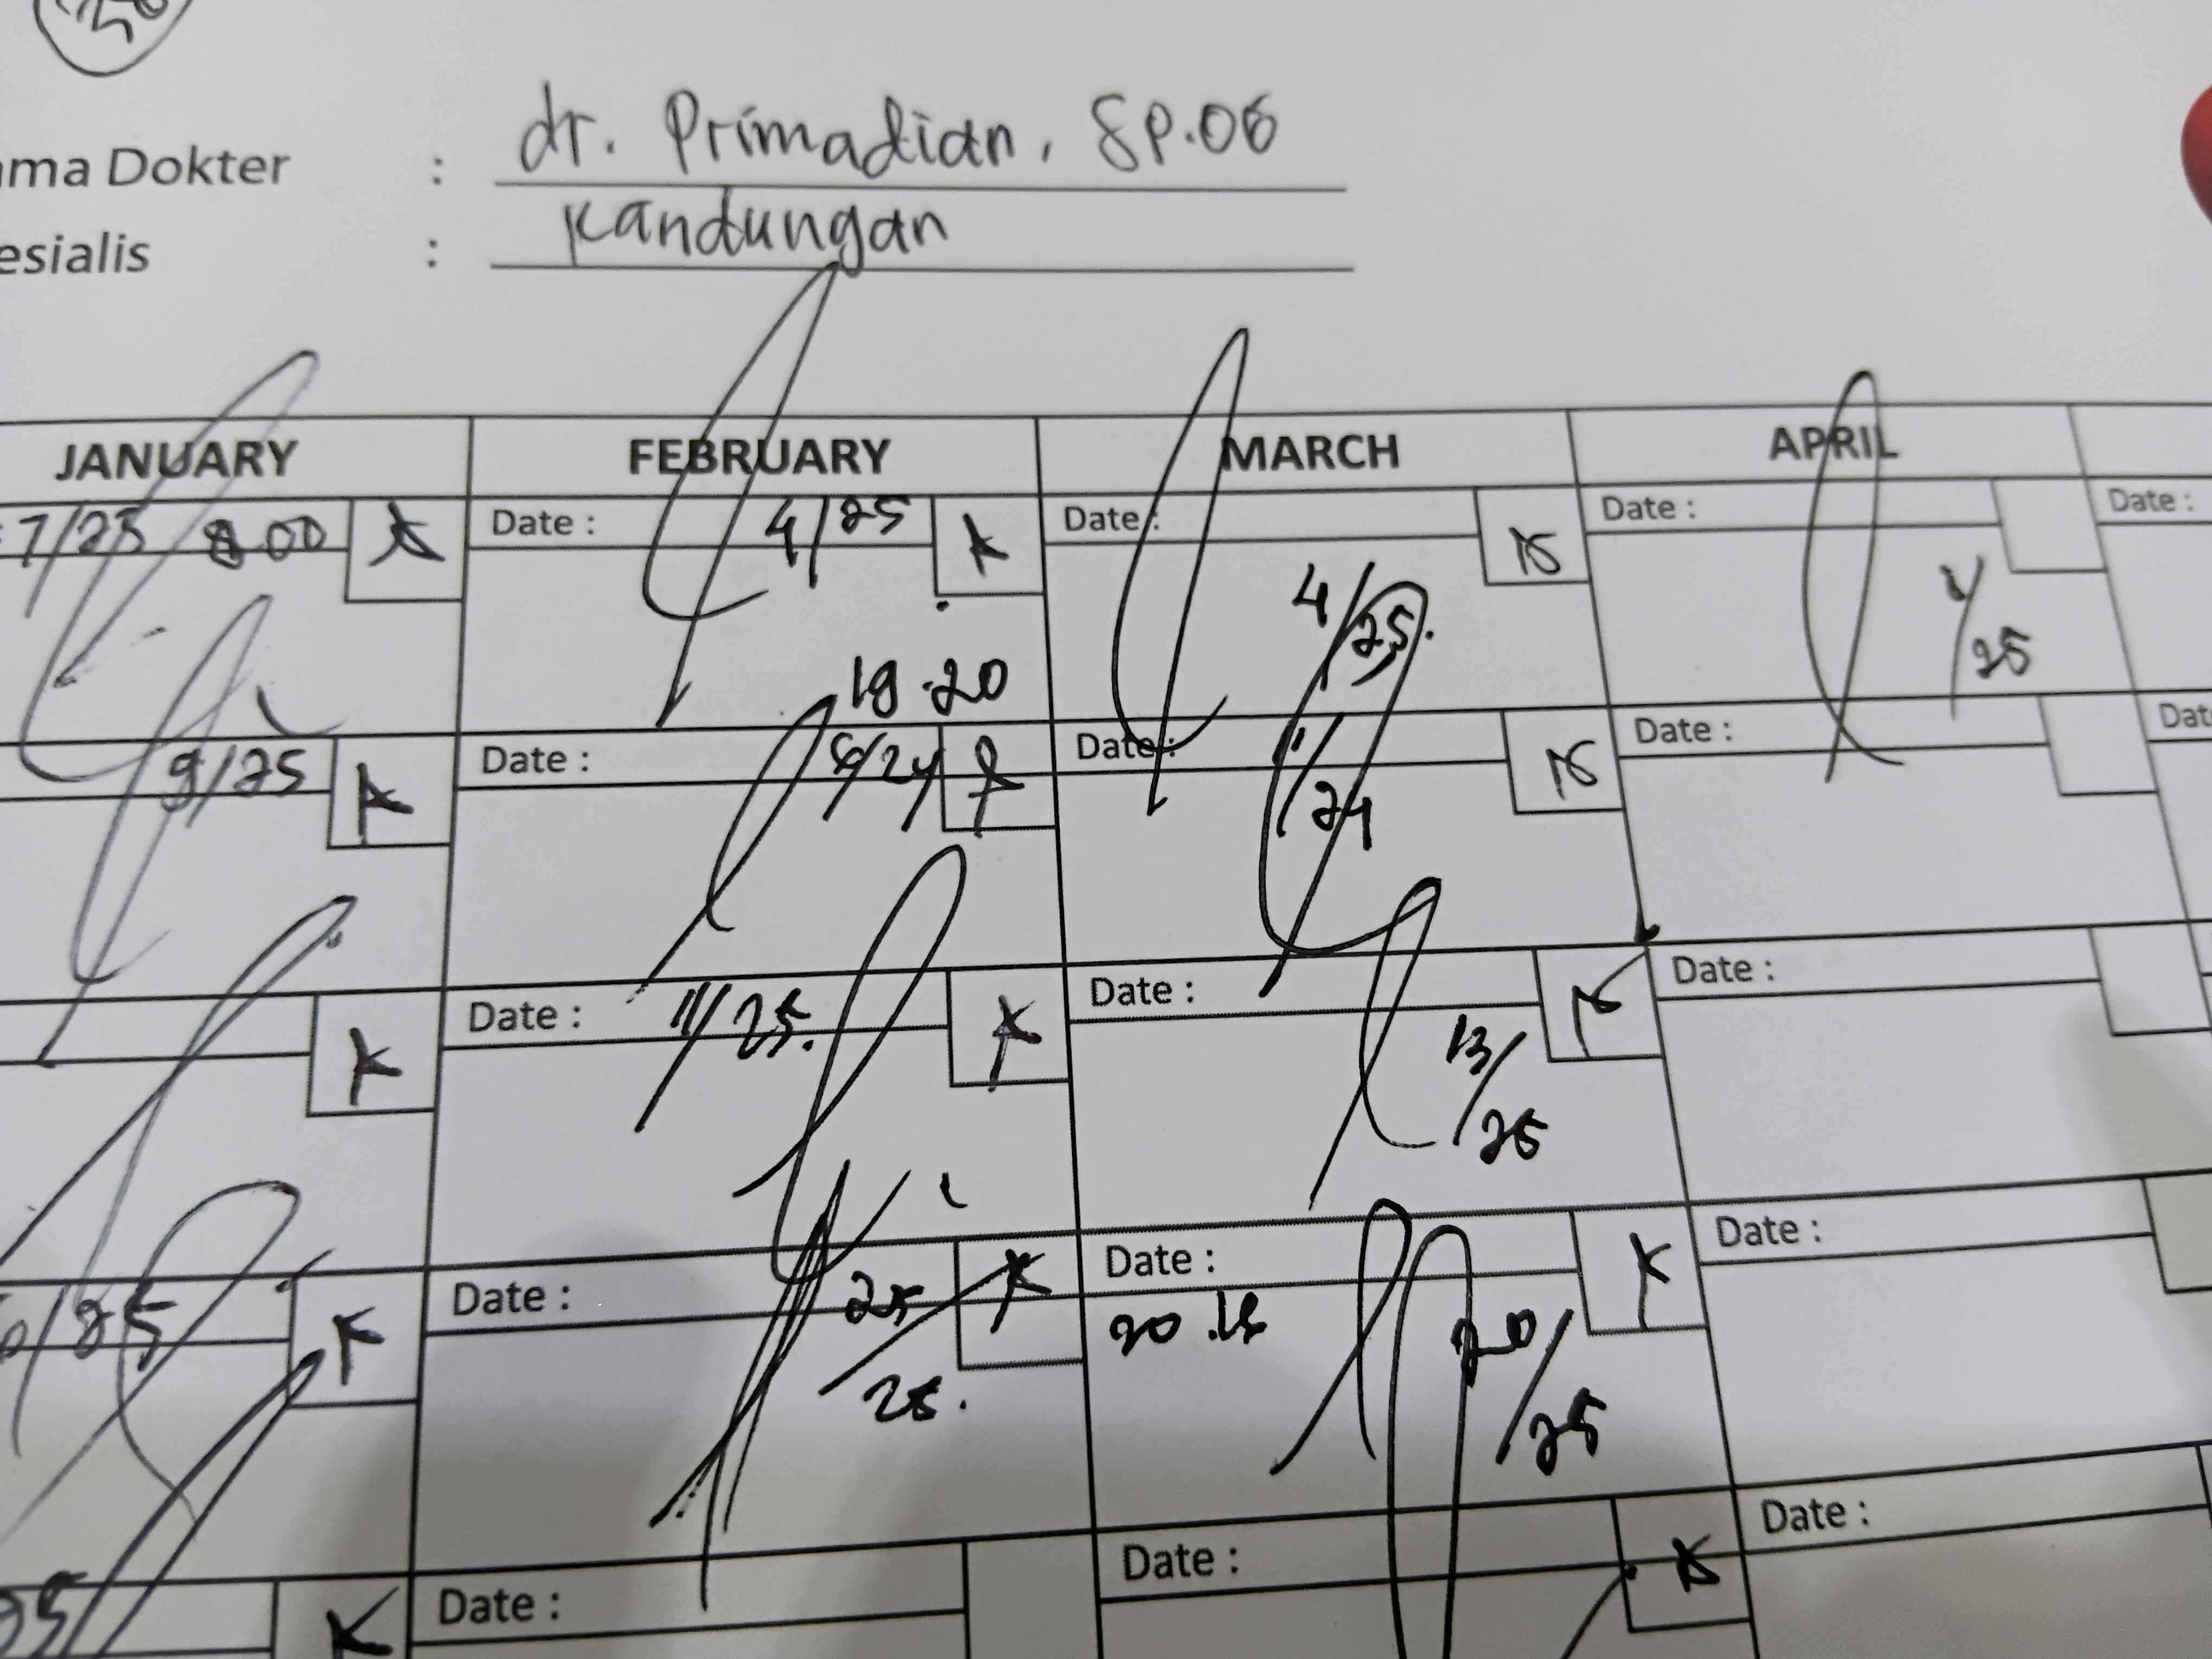 ama Dokter : dr. Primadian, Sp.OG
esialis : Kandungan
JANUARY FEBRUARY MARCH APRIL
7/25 8 00 Date : 4/25 Date : Date : Date :
4/25. /25
18.20
9/25 Date : 6/24 Date : Date : Dat
11/24
Date : 11/25. Date : Date :
13/25
/25 Date : 25/25. Date : Date :
20.15 20/25
25 Date : Date : Date :